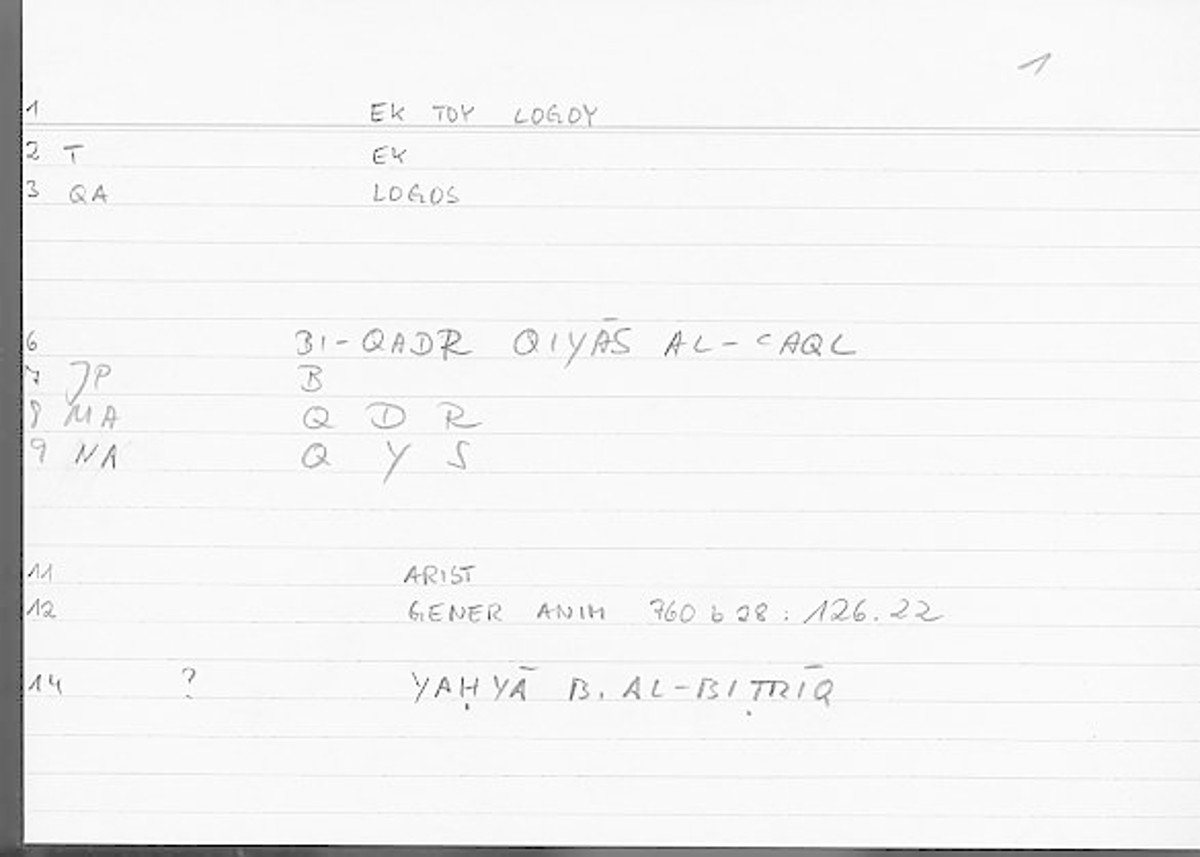 1
1 EK TOY LOGOY
2 T EK
3 QA LOGOS
6 BI-QADR QIYĀS AL-ʿAQL
7 JP B
8 MA Q D R
9 NA Q Y S
11 ARIST
12 GENER ANIM 760 b 28 : 126.22
14 ? YAḤYĀ B. AL-BIṬRĪQ